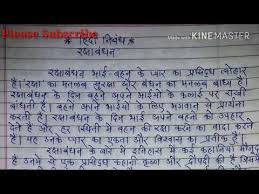 Please Subscribe
Made with KINEMASTER
* हिंदी निबंध *
रक्षाबंधन
रक्षाबंधन भाई-बहन के प्यार का प्रसिद्ध त्योहार
है। रक्षा का मतलब सुरक्षा और बंधन का मतलब बाध्य है।
रक्षाबंधन के दिन बहने अपने भाईयों के कलाई पर राखी
बांधती है। बहन अपने भाईयों के लिए भगवान से प्रार्थना
करती है। रक्षाबंधन के दिन भाई अपने बहनों को उपहार
देते है और हर स्थिती में बहन की रक्षा करने का वादा करते
है। यह उनके प्यार का एकता और विश्वास का प्रतीक है।
रक्षाबंधन के बारे में इतिहास में कई कहानियाँ मौजूद
है उनमे से एक प्रसिद्ध कहानी कृष्ण और द्रौपदी की है जिसमे